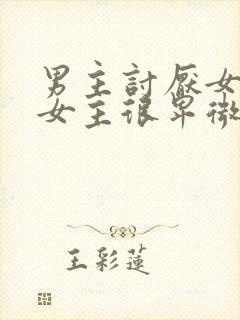 男主討厭女
女主很卑微
王彩蓮